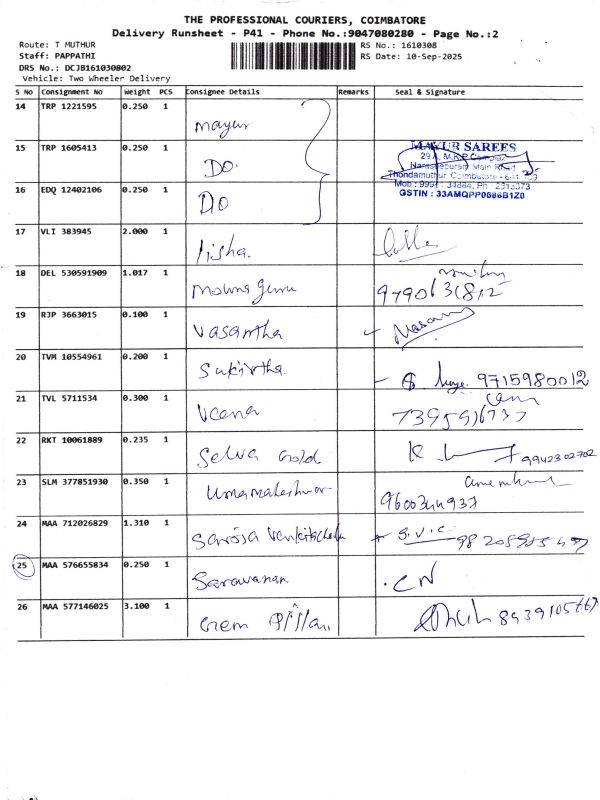 THE PROFESSIONAL COURIERS, COIMBATORE
Delivery Runsheet - P41 - Phone No.:9047080280 - Page No.:2
Route: T MUTHUR RS No.: 1610308
Staff: PAPPATHI RS Date: 10-Sep-2025
DRS No.: DCJB161030802
Vehicle: Two Wheeler Delivery
S No Consignment No Weight PCS Consignee Details Remarks Seal & Signature
14 TRP 1221595 0.250 1 Mayur
15 TRP 1605413 0.250 1 Do.
MAYUR SAREES
29 A, M.K.P. Complex
Narasheepuram Main Road
Thondamuthur, Coimbatore - 641 109
GSTIN : 33AMQPP0686B1Z0
16 EDQ 12402106 0.250 1 Do
17 VLI 383945 2.000 1 lisha.
18 DEL 530591909 1.017 1 Mouna Guru
19 RJP 3663015 0.100 1 Vasantha
20 TVM 10554961 0.200 1 Sukirtha 9715980012
21 TVL 5711534 0.300 1 Veena
22 RKT 10061889 0.235 1 Selva Gold 9942302702
23 SLM 377851930 0.350 1 Umamaheshwar 9600344937
24 MAA 712026829 1.310 1 Saroja S.V.C
25 MAA 576655834 0.250 1 Saravanan. CN
26 MAA 577146025 3.100 1 Gem 8939105667